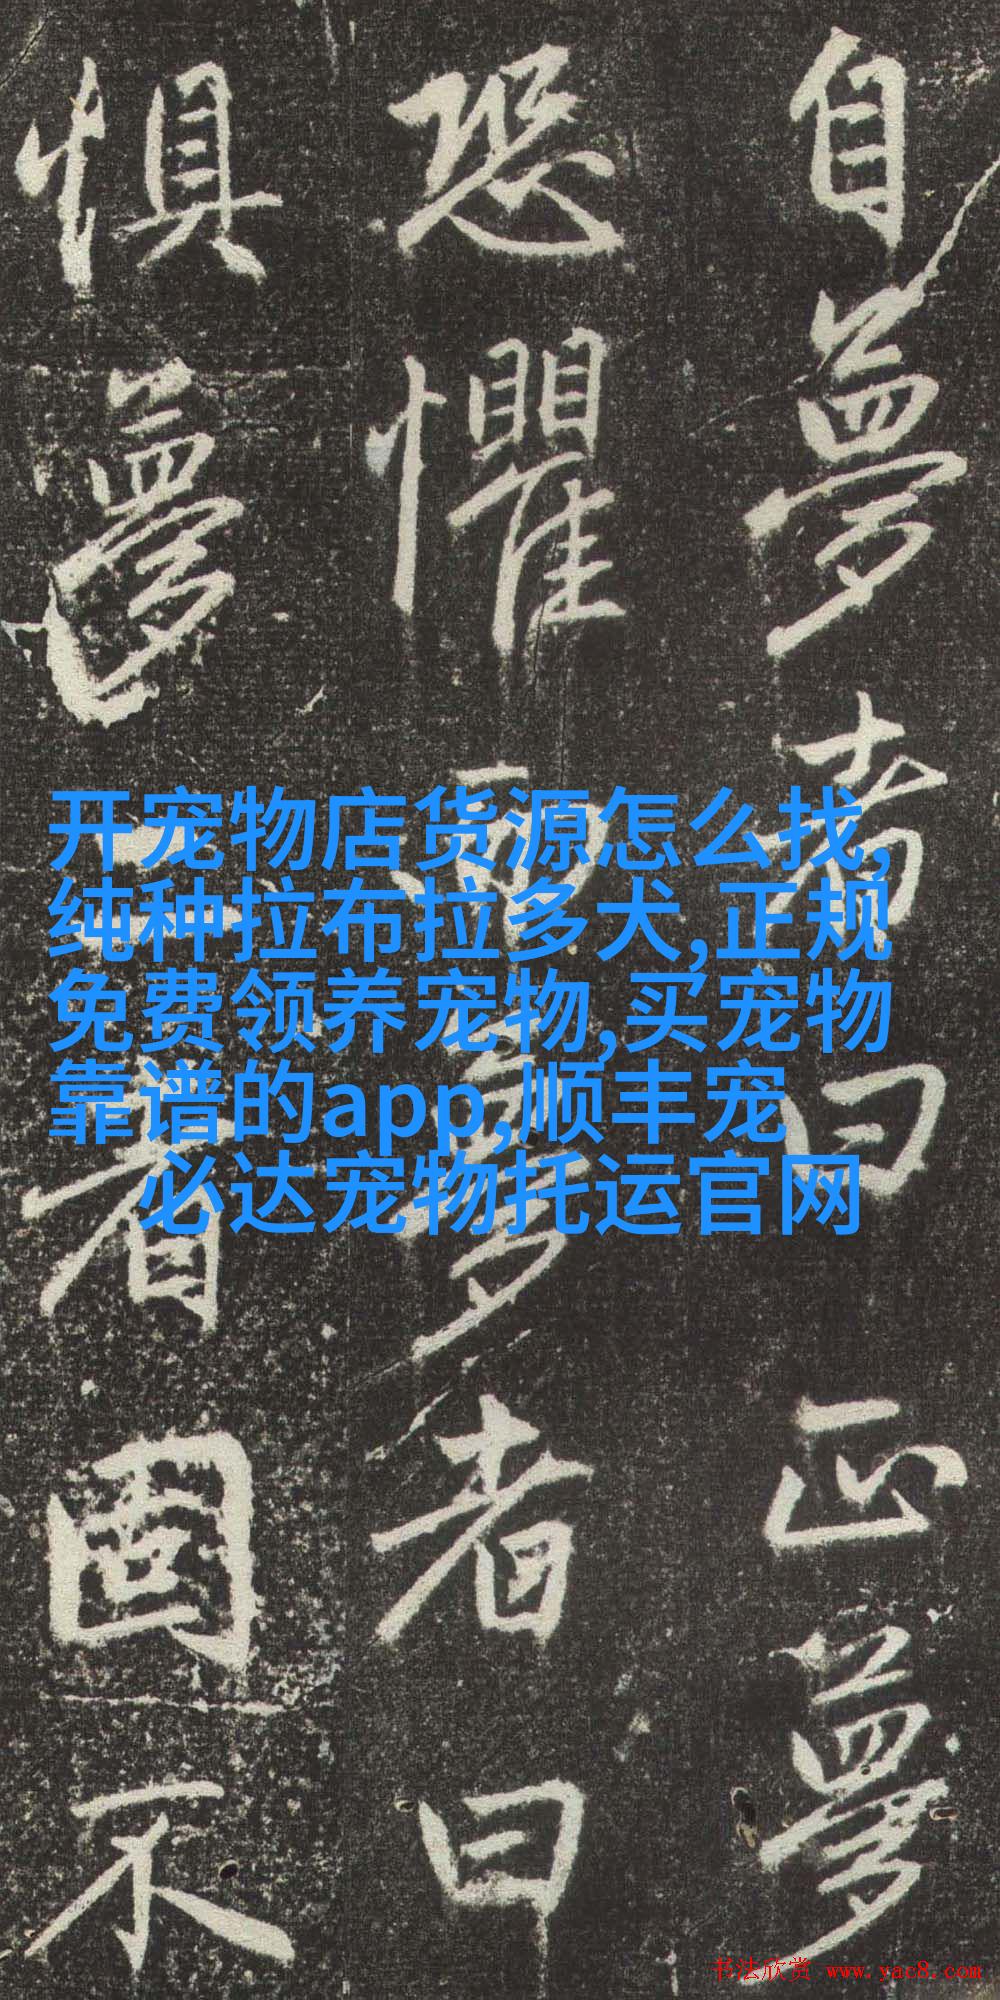 自夢者曰正夢
恐懼而夢者曰
惧夢二者固不
开宠物店货源怎么找,
纯种拉布拉多犬,正规
免费领养宠物,买宠物
靠谱的app,顺丰宠
必达宠物托运官网
书法欣赏 www.yac8.com